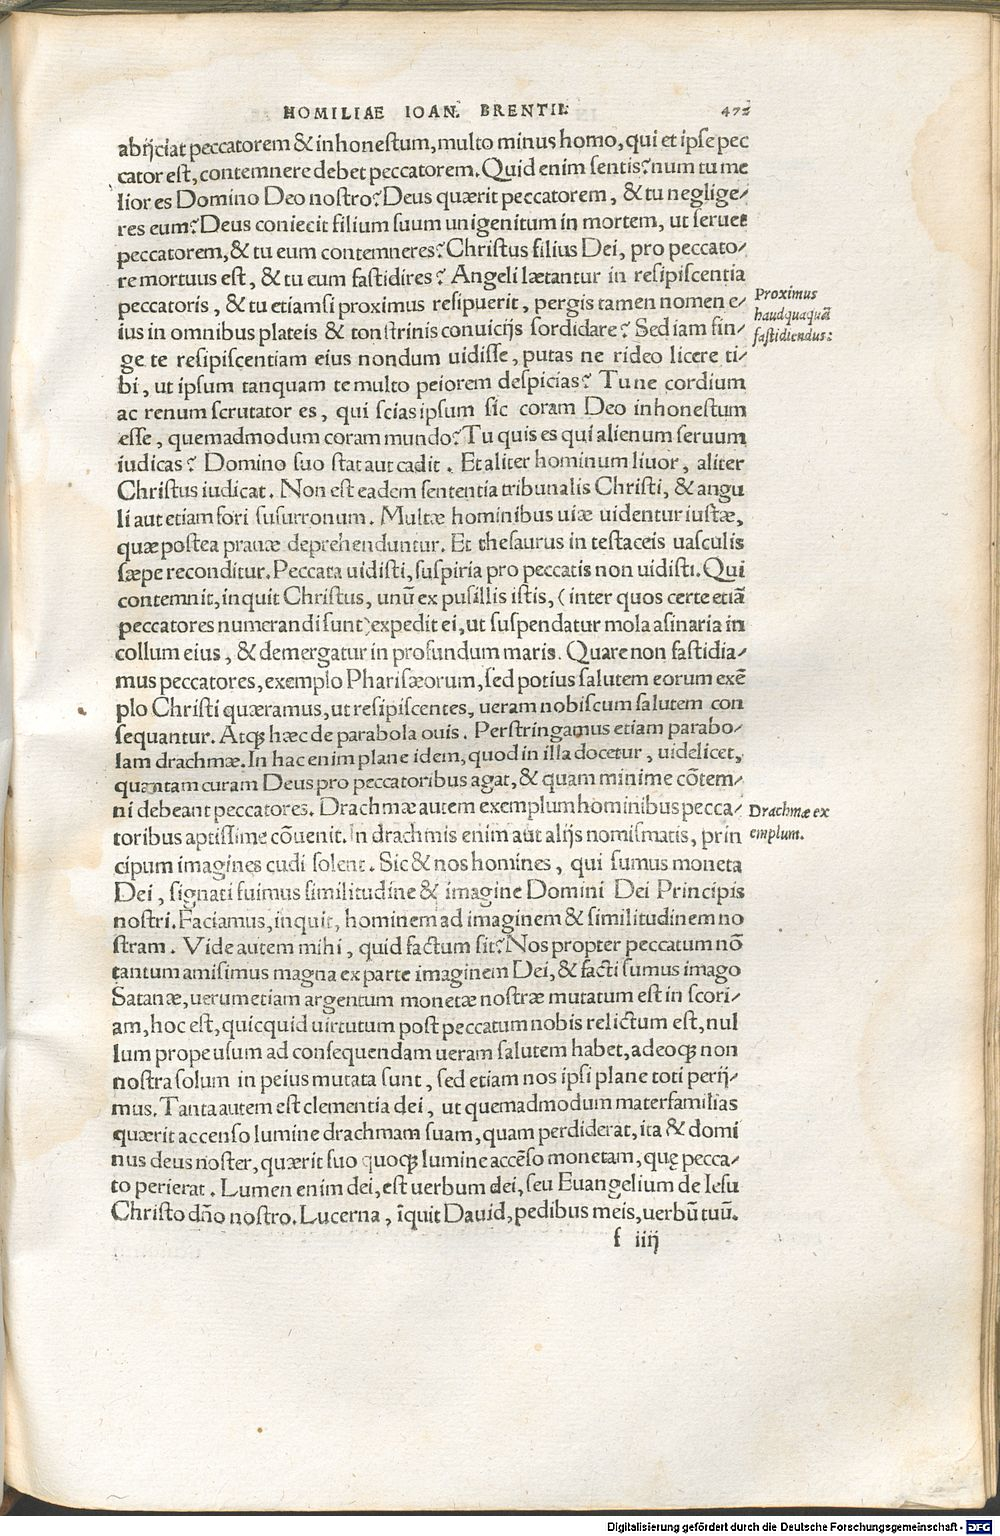 HOMILIAE IOAN. BRENTII.
abijciat peccatorem & inhonestum, multo minus homo, qui et ipse pec
cator est, contemnere debet peccatorem. Quid enim sentis? num tu me
lior es Domino Deo nostro? Deus quærit peccatorem, & tu neglige/
res eum? Deus coniecit filium suum unigenitum in mortem, ut seruet
peccatorem, & tu eum contemneres? Christus filius Dei, pro peccato/
re mortuus est, & tu eum fastidires? Angeli lætantur in resipiscentia
peccatoris, & tu etiamsi proximus resipuerit, pergis tamen nomen e/
ius in omnibus plateis & tonstrinis conuicijs sordidare? Sed iam fin/
ge te resipiscentiam eius nondum uidisse, putas ne rideo licere ti/
bi, ut ipsum tanquam te multo peiorem despicias? Tu ne cordium
ac renum scrutator es, qui scias ipsum sic coram Deo inhonestum
esse, quemadmodum coram mundo? Tu quis es qui alienum seruum
iudicas? Domino suo stat aut cadit. Et aliter hominum liuor, aliter
Christus iudicat. Non est eadem sententia tribunalis Christi, & angu
li aut etiam fori susurronum. Multæ hominibus uiæ uidentur iustæ,
quæ postea prauæ deprehenduntur. Et thesaurus in testaceis uasculis
sæpe reconditur. Peccata uidisti, suspiria pro peccatis non uidisti. Qui
contemnit, inquit Christus, unū ex pusillis istis, (inter quos certe etiā
peccatores numerandi sunt) expedit ei, ut suspendatur mola asinaria in
collum eius, & demergatur in profundum maris. Quare non fastidia/
mus peccatores, exemplo Pharisæorum, sed potius salutem eorum exē
plo Christi quæramus, ut resipiscentes, ueram nobiscum salutem con
sequantur. Atqȝ hæc de parabola ouis. Perstringamus etiam parabo/
lam drachmæ. In hac enim plane idem, quod in illa docetur, uidelicet,
quantam curam Deus pro peccatoribus agat, & quam minime cōtem/
ni debeant peccatores. Drachmæ autem exemplum hominibus pecca/
toribus aptissime cōuenit. In drachmis enim aut alijs nomismatis, prin
cipum imagines cudi solent. Sic & nos homines, qui sumus moneta
Dei, signati fuimus similitudine & imagine Domini Dei Principis
nostri. Faciamus, inquit, hominem ad imaginem & similitudinem no
stram. Vide autem mihi, quid factum sit? Nos propter peccatum nō
tantum amisimus magna ex parte imaginem Dei, & facti sumus imago
Satanæ, uerumetiam argentum monetæ nostræ mutatum est in scori/
am, hoc est, quicquid uirtutum post peccatum nobis relictum est, nul
lum prope usum ad consequendam ueram salutem habet, adeoqȝ non
nostra solum in peius mutata sunt, sed etiam nos ipsi plane toti perij/
mus. Tanta autem est clementia dei, ut quemadmodum materfamilias
quærit accenso lumine drachmam suam, quam perdiderat, ita & domi
nus deus noster, quærit suo quoqȝ lumine accēso monetam, quę pecca/
to perierat. Lumen enim dei, est uerbum dei, seu Euangelium de Iesu
Christo dño nostro. Lucerna, īquit Dauid, pedibus meis, uerbū tuū.
f iiij
Proximus
haudquaquā
fastidiendus:
Drachmæ ex
emplum.
Digitalisierung gefördert durch die Deutsche Forschungsgemeinschaft - DFG